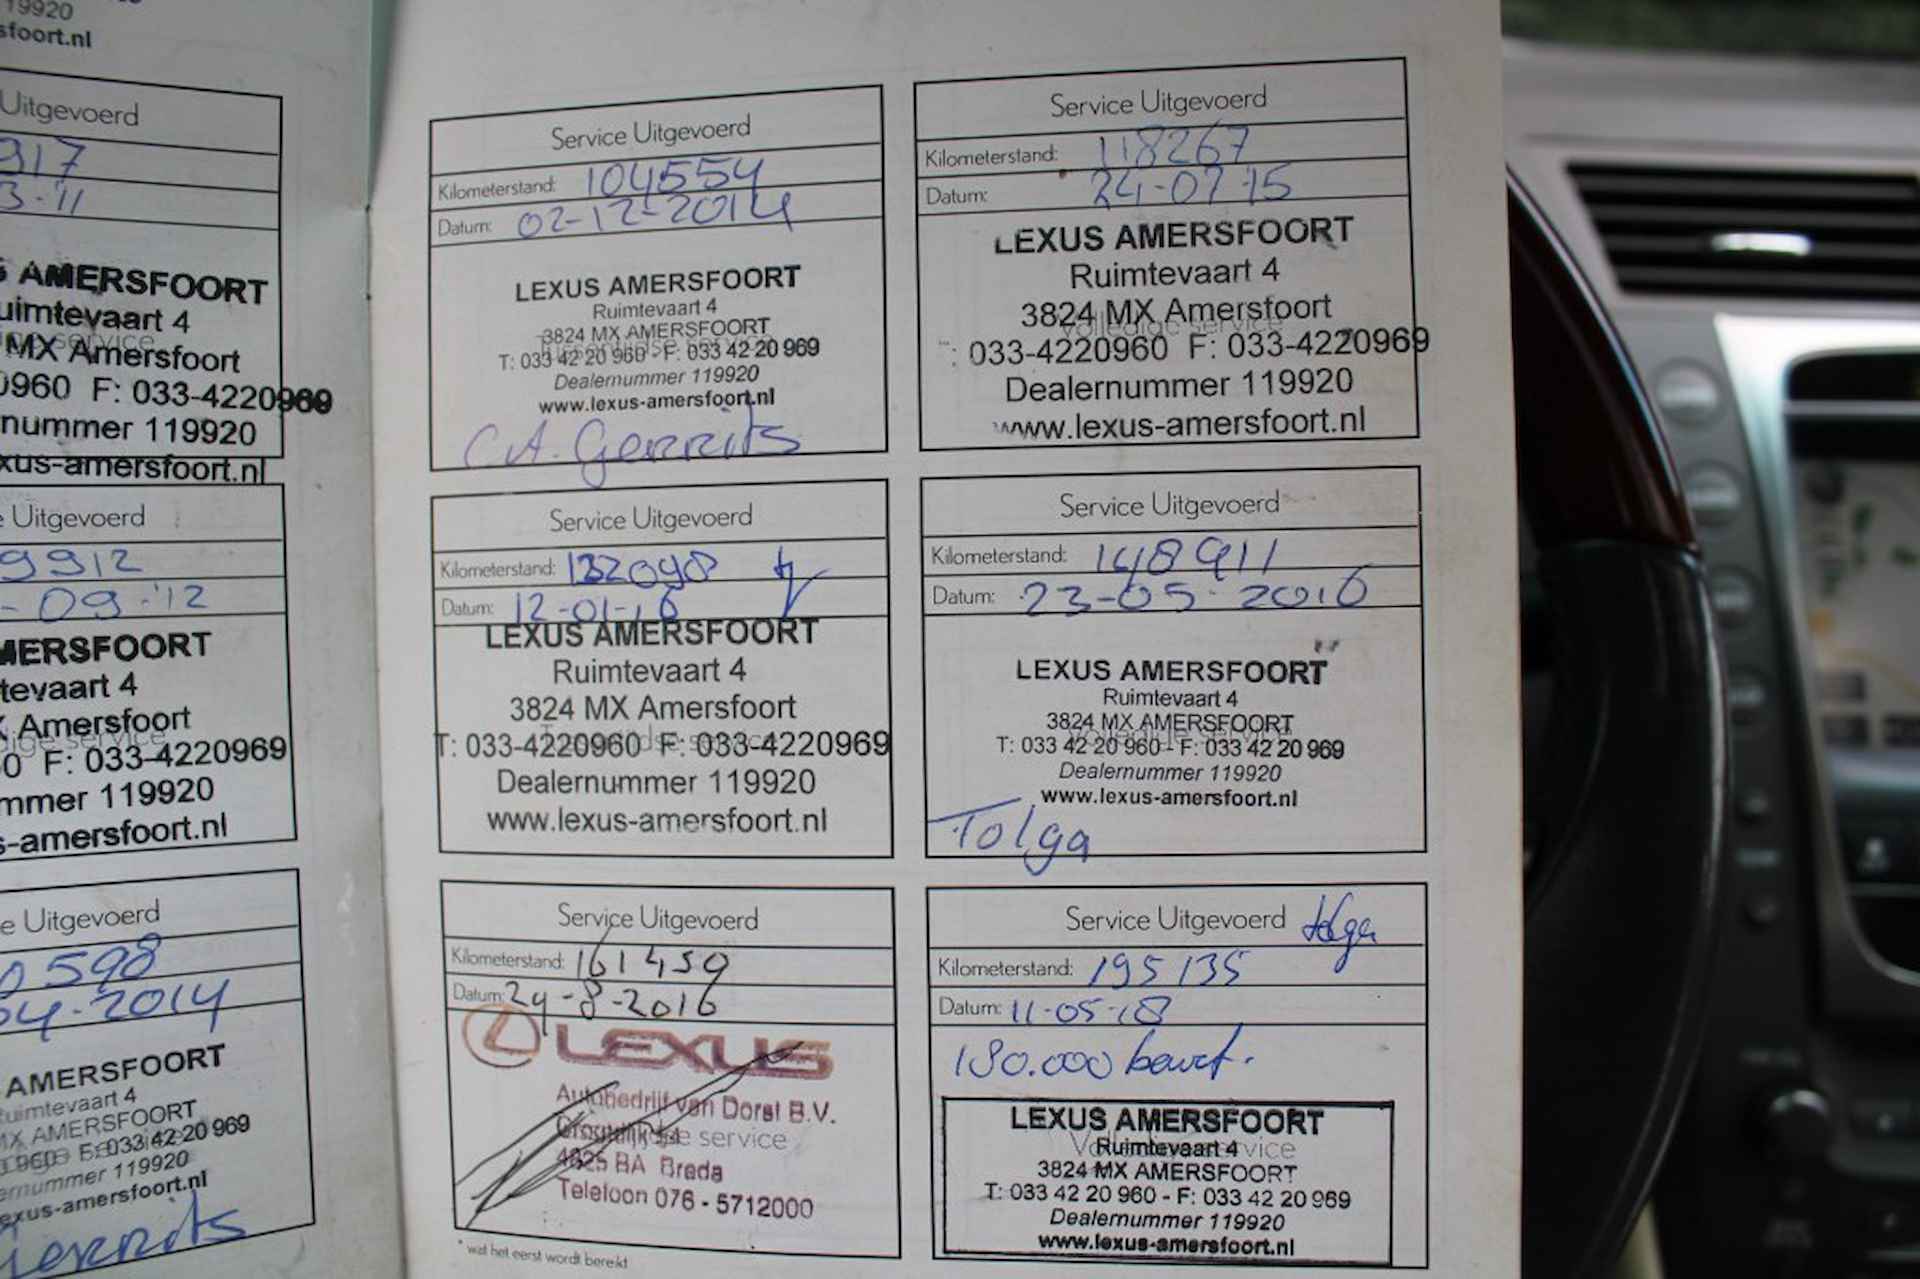 119920
sfoort.nl
Uitgevoerd
917
3-'11
AMERSFOORT
uimtevaart 4
MX Amersfoort
0960 F: 033-4220969
nummer 119920
xus-amersfoort.nl
e Uitgevoerd
9912
-09-'12
MERSFOORT
tevaart 4
X Amersfoort
0 F: 033-4220969
mmer 119920
s-amersfoort.nl
e Uitgevoerd
0598
04-2014
AMERSFOORT
uimtevaart 4
MX AMERSFOORT
960 F: 033 42 20 969
ernummer 119920
exus-amersfoort.nl
Gerrits
Service Uitgevoerd
Kilometerstand: 104554
Datum: 02-12-2014
LEXUS AMERSFOORT
Ruimtevaart 4
3824 MX AMERSFOORT
T: 033 42 20 960 F: 033 42 20 969
Dealernummer 119920
www.lexus-amersfoort.nl
C.A. Gerrits
Service Uitgevoerd
Kilometerstand: 118267
Datum: 24-07-15
LEXUS AMERSFOORT
Ruimtevaart 4
3824 MX Amersfoort
Volledige service
: 033-4220960 F: 033-4220969
Dealernummer 119920
www.lexus-amersfoort.nl
Service Uitgevoerd
Kilometerstand: 132098
Datum: 12-01-16
LEXUS AMERSFOORT
Ruimtevaart 4
3824 MX Amersfoort
T: 033-4220960 F: 033-4220969
Dealernummer 119920
www.lexus-amersfoort.nl
Service Uitgevoerd
Kilometerstand: 148911
Datum: 23-05-2016
LEXUS AMERSFOORT
Ruimtevaart 4
3824 MX AMERSFOORT
Volledige service
T: 033 42 20 960 - F: 033 42 20 969
Dealernummer 119920
www.lexus-amersfoort.nl
Tolga
Service Uitgevoerd
Kilometerstand: 161459
Datum: 24-8-2016
LEXUS
Autobedrijf van Dorst B.V.
service
4825 BA Breda
Telefoon 076 - 5712000
* wat het eerst wordt bereikt
Service Uitgevoerd Tolga
Kilometerstand: 195135
Datum: 11-05-18
190.000 beurt.
LEXUS AMERSFOORT
Ruimtevaart 4
Volledige service
3824 MX AMERSFOORT
T: 033 42 20 960 - F: 033 42 20 969
Dealernummer 119920
www.lexus-amersfoort.nl